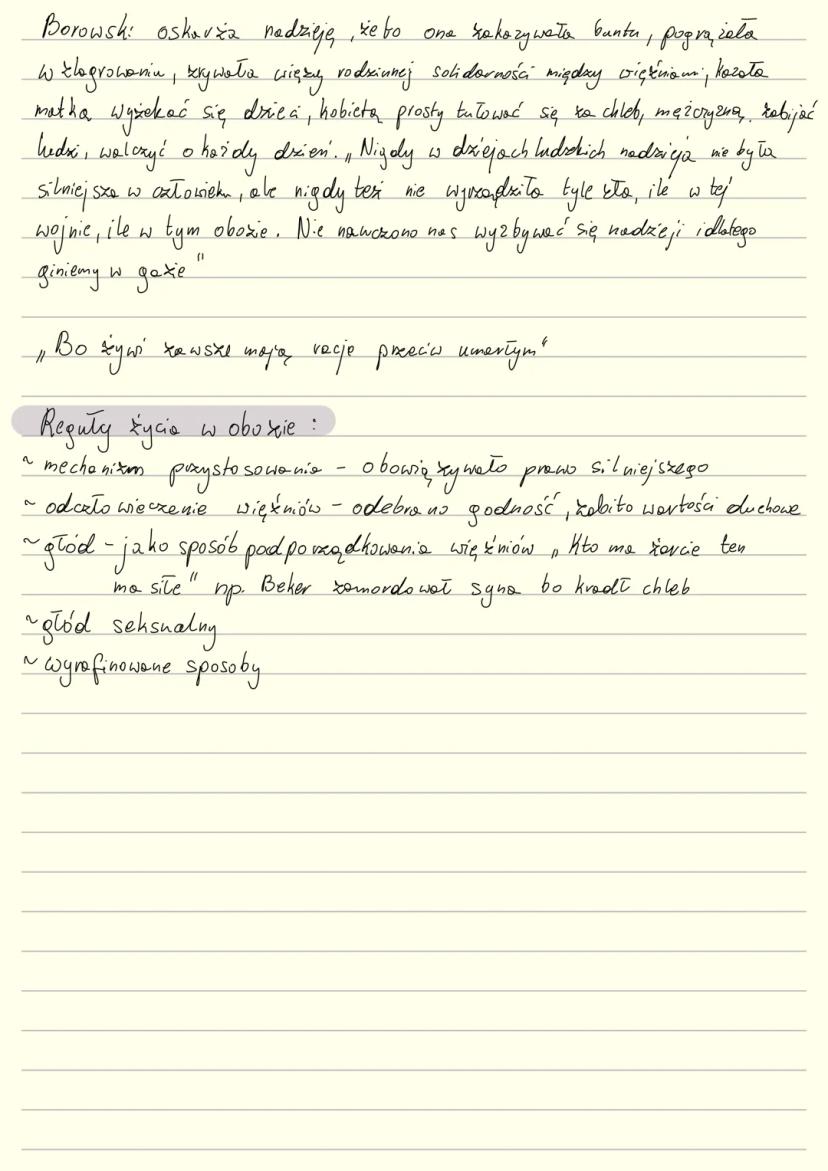 Borowski oskarża nadzieję, że bo ona zakazywała buntu, pogrążała
w zlagrowaniu, zrywała więzy rodzinnej solidarności między więźniami, kazała
matką wyżekać się dzieci, kobietą prostytułować się za chleb, mężczyzną, zabijać
ludzi, walczyć o każdy dzień. „Nigdy w dziejach ludzkich nadzieja nie była
silniejsza w człowieku, ale nigdy też nie wyrządziła tyle zła, ile w tej
wojnie, ile w tym obozie. Nie nauczono nas wyzbywać się nadzieji i dlatego
giniemy w gazie"
„Bo żywi zawsze mają racje przeciw umarłym"
Reguły życia w obozie:
~ mechanizm przystosowania - obowiązywało prawo silniejszego
~ odczłowieczenie więźniów - odebrano godność, zabito wartości duchowe
~ głód - jako sposób podporządkowania więźniów „Kto ma żarcie ten
ma siłe" np. Beker zamordował syna bo kradł chleb
~ głód seksualny
~ wyrafinowane sposoby